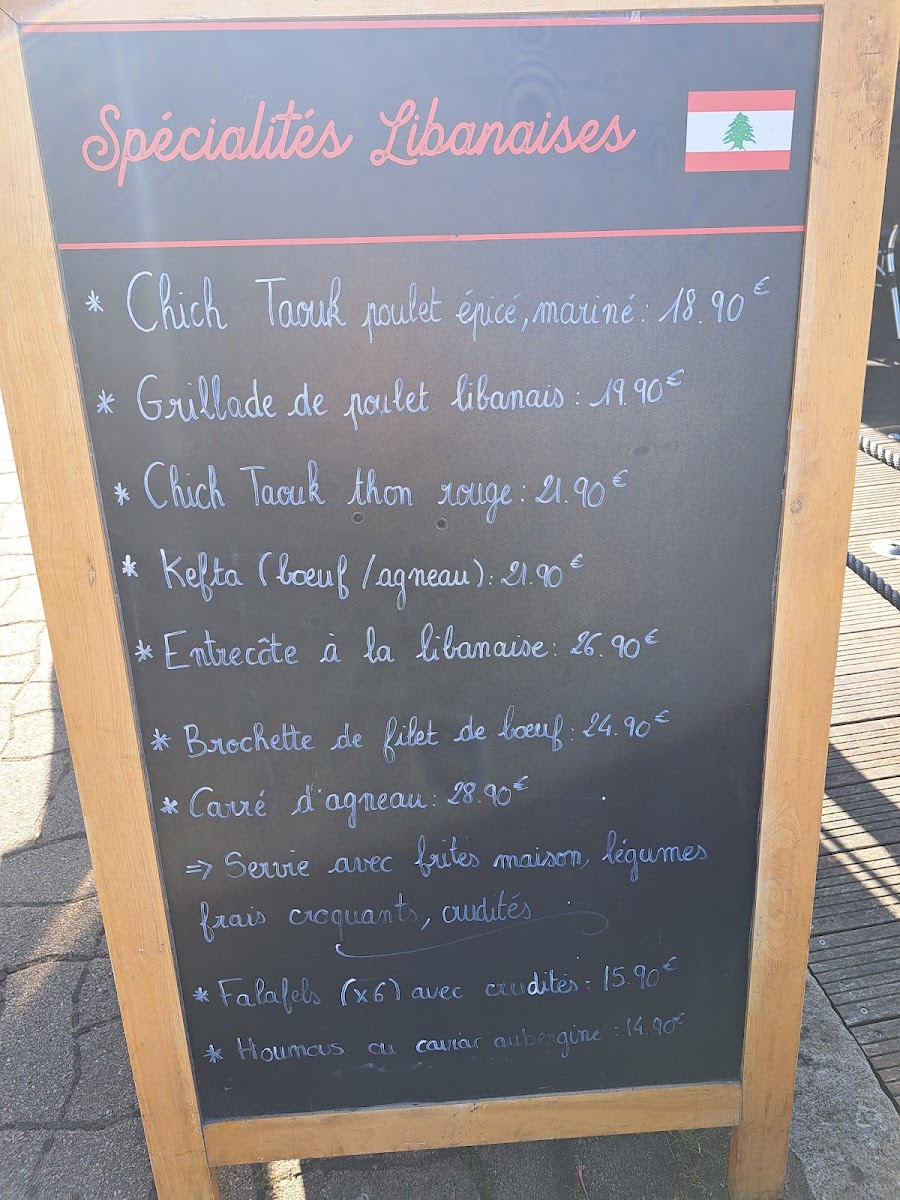 Spécialités Libanaises
* Chich Taouk poulet épicé, mariné : 18.90€
* Grillade de poulet libanais : 19.90€
* Chich Taouk thon rouge : 21.90€
* Kefta (bœuf /agneau) : 21.90€
* Entrecôte à la libanaise : 26.90€
* Brochette de filet de bœuf : 24.90€
* Carré d'agneau : 28.90€
=> Servie avec frites maison, légumes
frais croquants, crudités
* Falafels (x6) avec crudités : 15.90€
* Houmous ou caviar aubergine : 14.90€